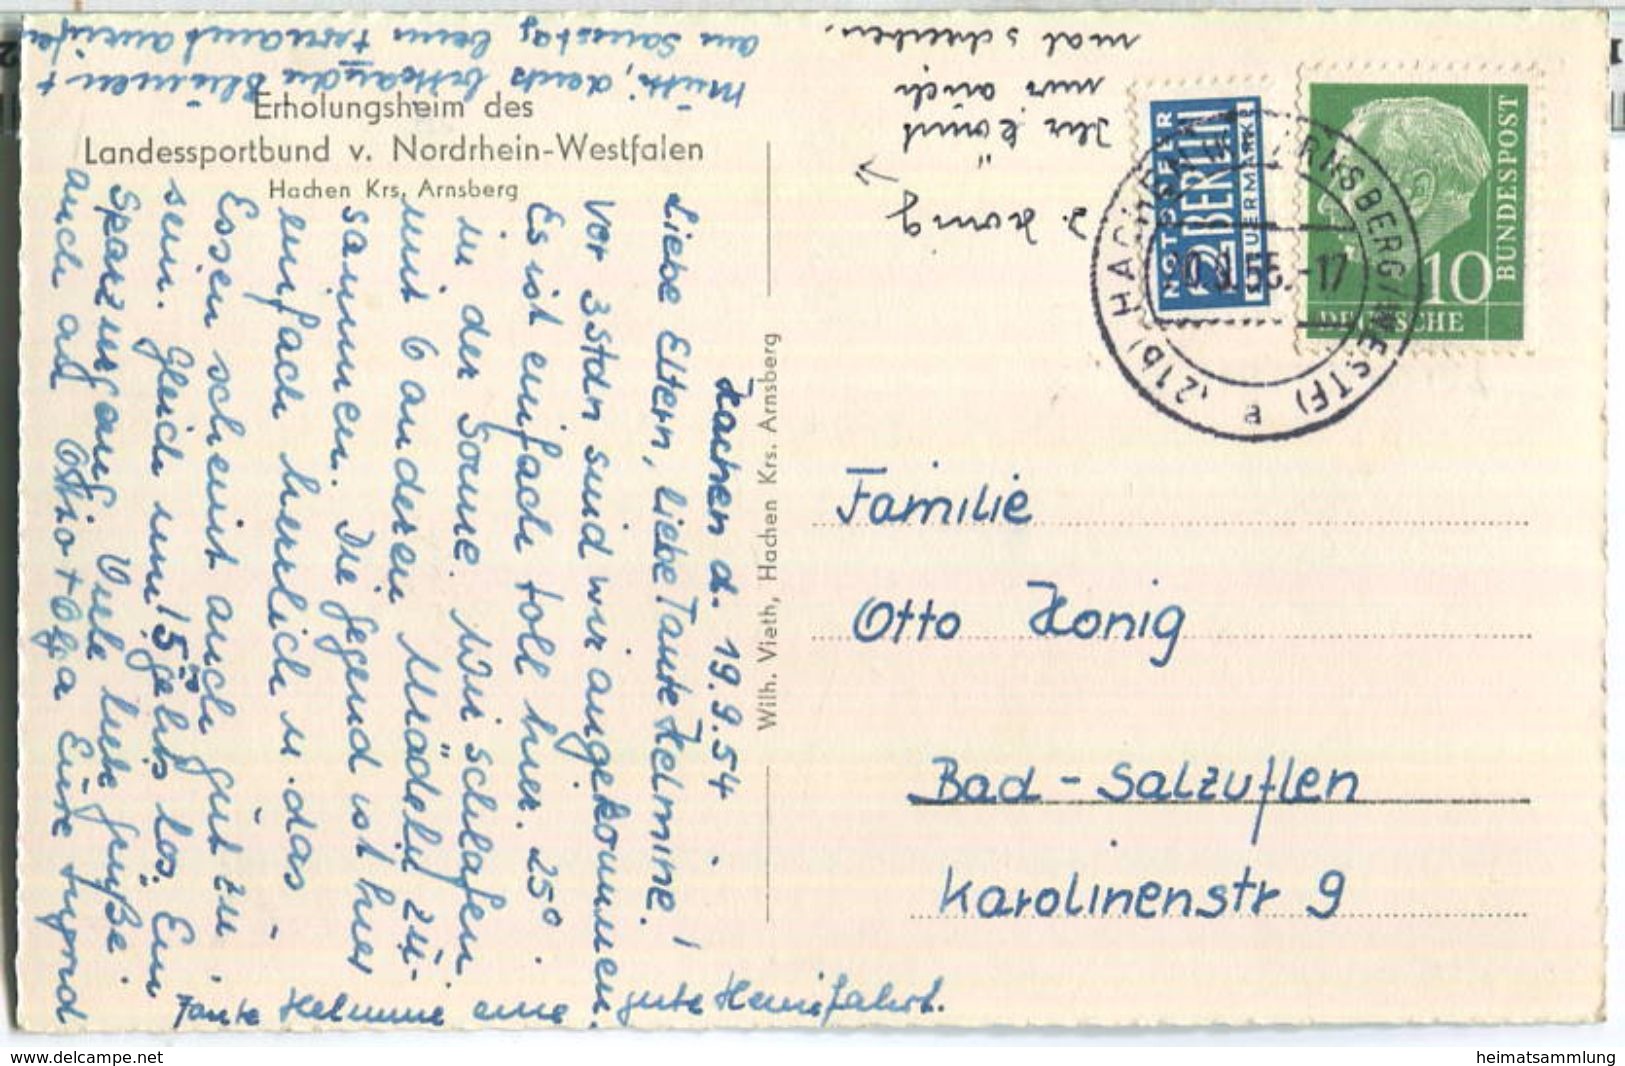 Erholungsheim des
Landessportbund v. Nordrhein-Westfalen
Hachen Krs. Arnsberg
Wilh. Vieth, Hachen Krs. Arnsberg
Hachen d. 19.9.54.
Liebe Eltern, liebe Tante Helmine!
Vor 3 Stdn sind wir angekommen.
Es ist einfach toll hier. 25°
in der Sonne. Wir schlafen
mit 6 anderen Mädeln zu-
sammen. Die Gegend ist hier
einfach herrlich u. das
Essen scheint auch gut zu
sein. Gleich um 15 geht's los. Ein
Viele liebe Grüße
auch an Otto + Olga Eure Sigrid
Tante Helmine eine gute Heimfahrt.
Mutti, denk bitte an die Blumen +
am Samstag beim
J. König
Ihr könnt
mir auch
mal schreiben.
NOTOPFER
2 BERLIN
STEUERMARKE
10
DEUTSCHE
BUNDESPOST
(21b) HACHEN ü. ARNSBERG (WESTF)
a
Familie
Otto König
Bad-Salzuflen
Karolinenstr 9
www.delcampe.net
heimatsammlung